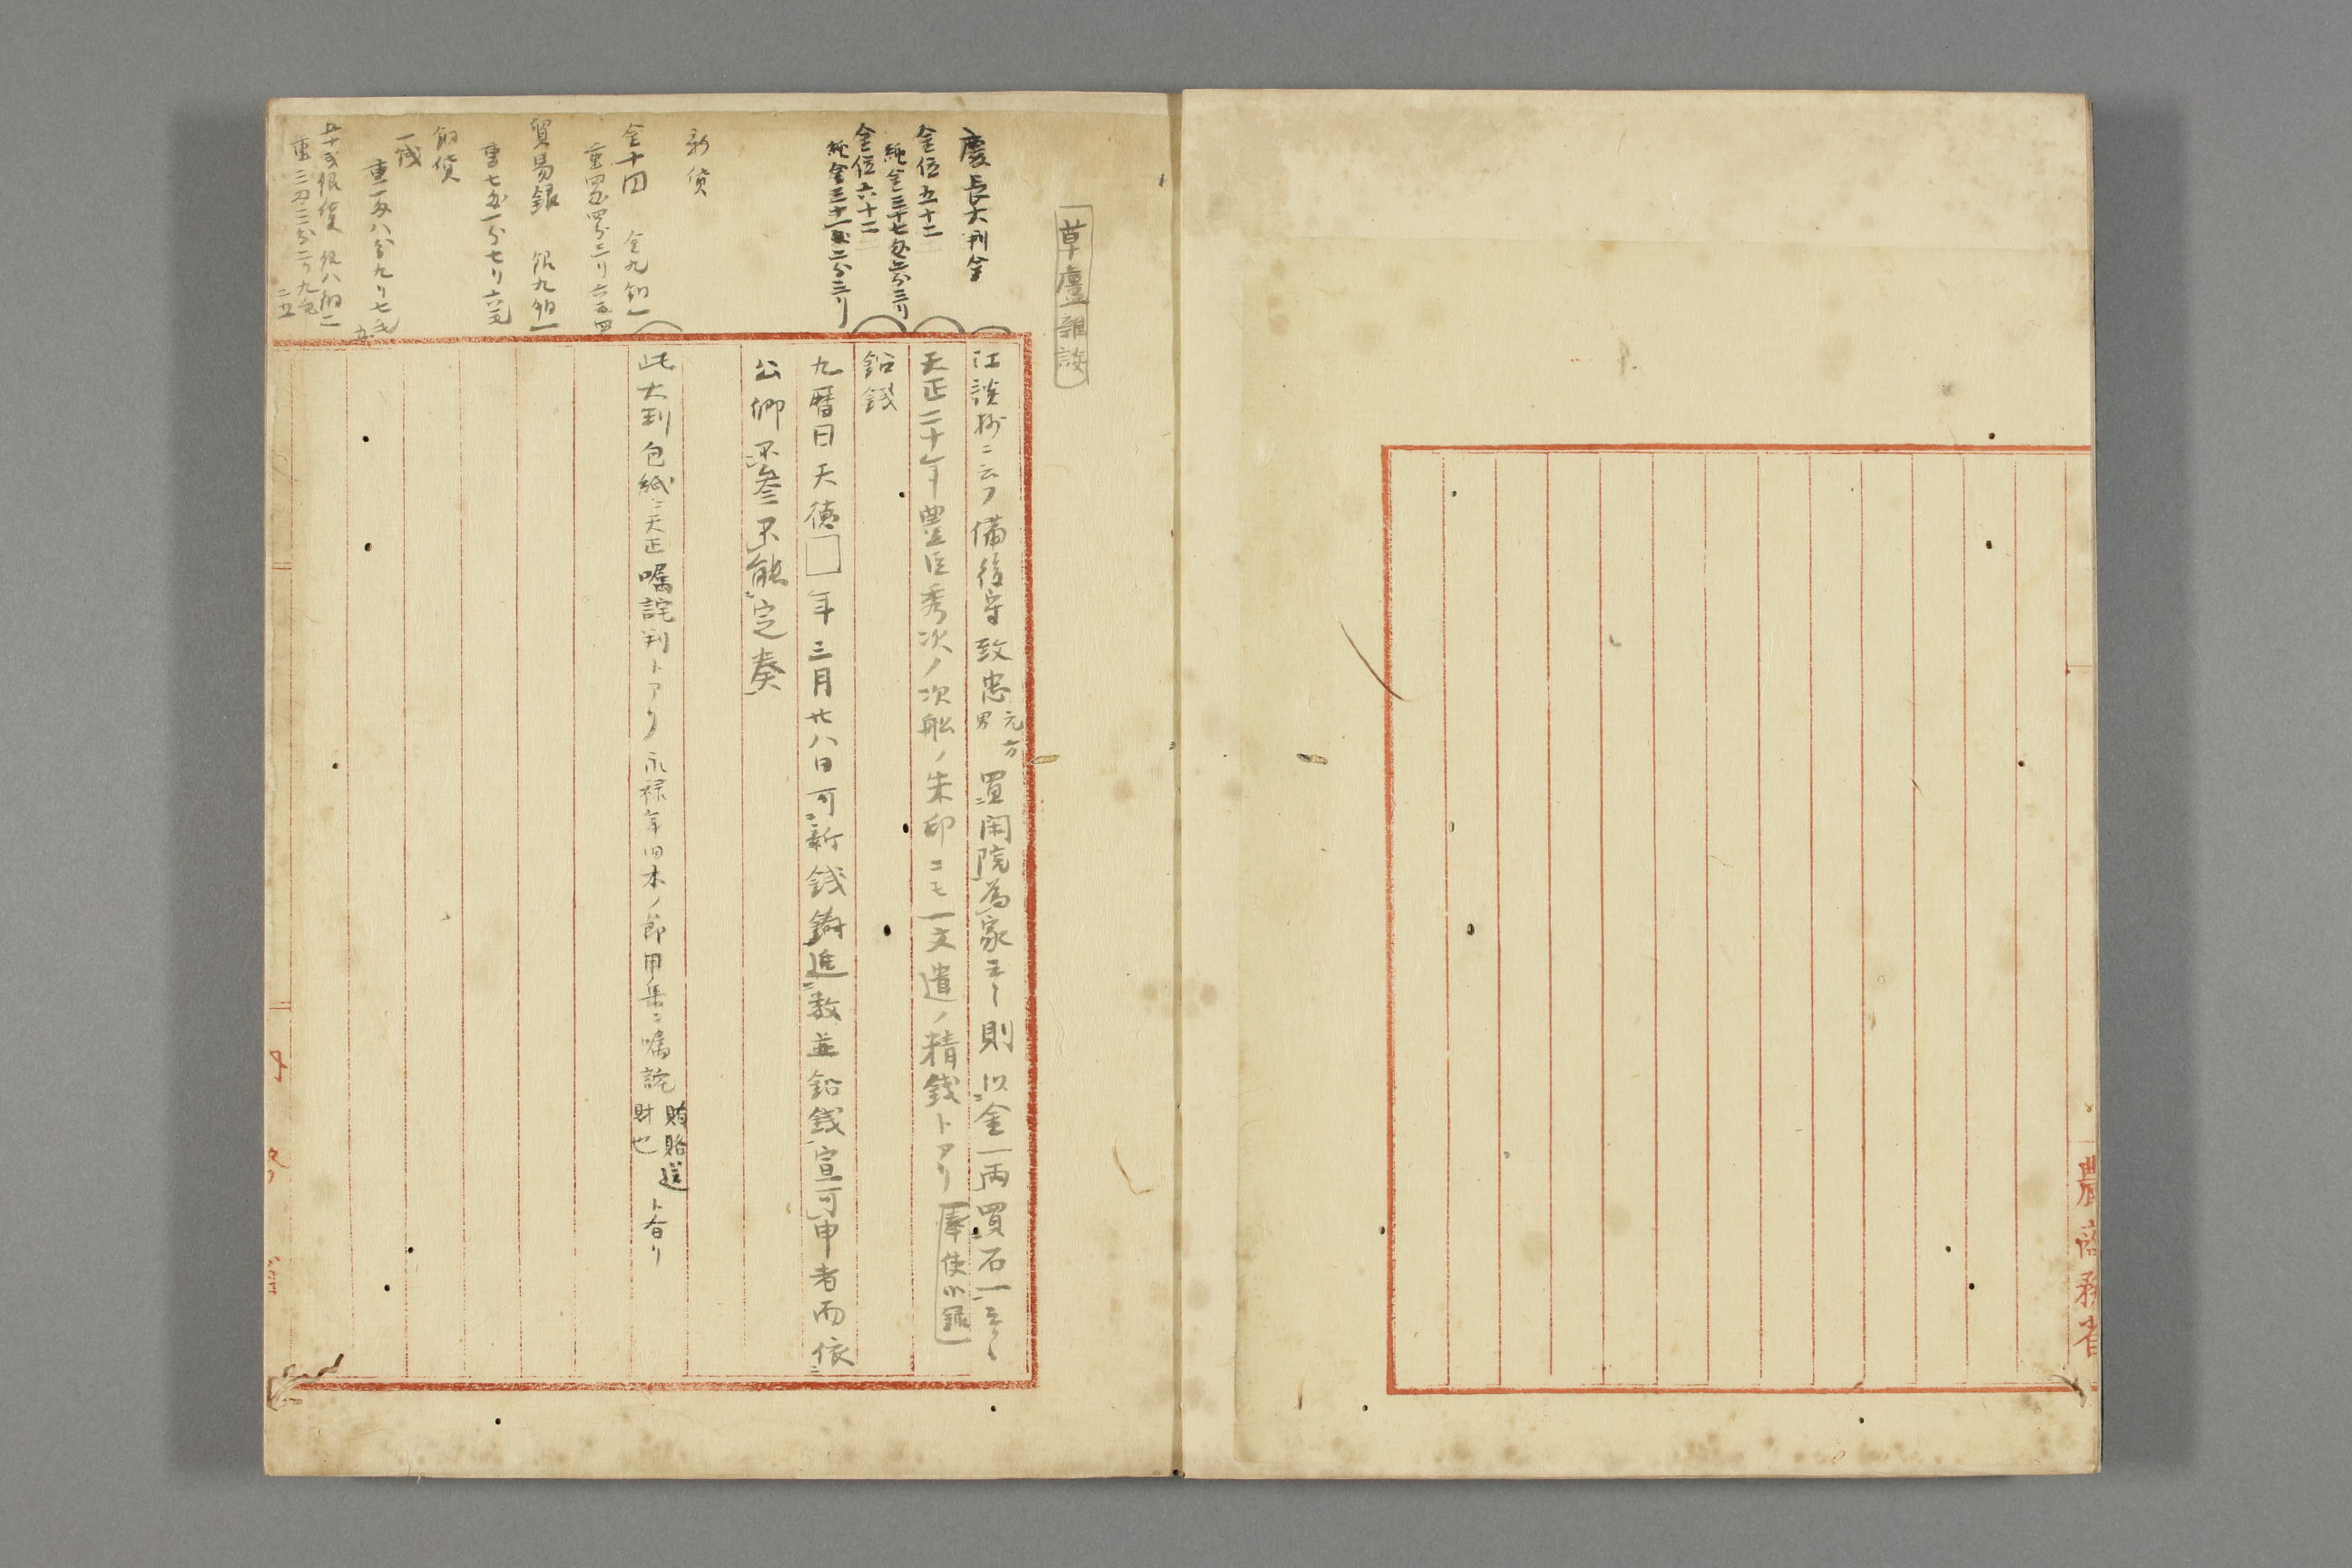 農商務省
草廬雜談
慶長大判金
金位五十二
純金三十七匁六分三リ
金位六十二
純金三十一匁二分三リ
新貨
金十円 金九銅一
重四匁四分三リ六五四
貿易銀 銀九銅一
重七匁一分七リ六毛
銅貨
一銭
重一匁八分九リ七毛五
五十銭銀貨 銀八銅二
江談抄ニ云フ備後守致忠元方男買閑院為家云々則以金一両買石一云々
天正二十年豊臣秀次ノ次船ノ朱印ニモ一文遣ノ精銭トアリ「奉使小録」
鉛銭
九暦曰天徳□年三月廿八日可新銭鋳進数並鉛銭宣可申者而依
公卿不参不能定奏
此大判包紙ニ天正嘱託判トアリ永禄年旧本ノ節用集ニ嘱託賄賂送財也ト有リ